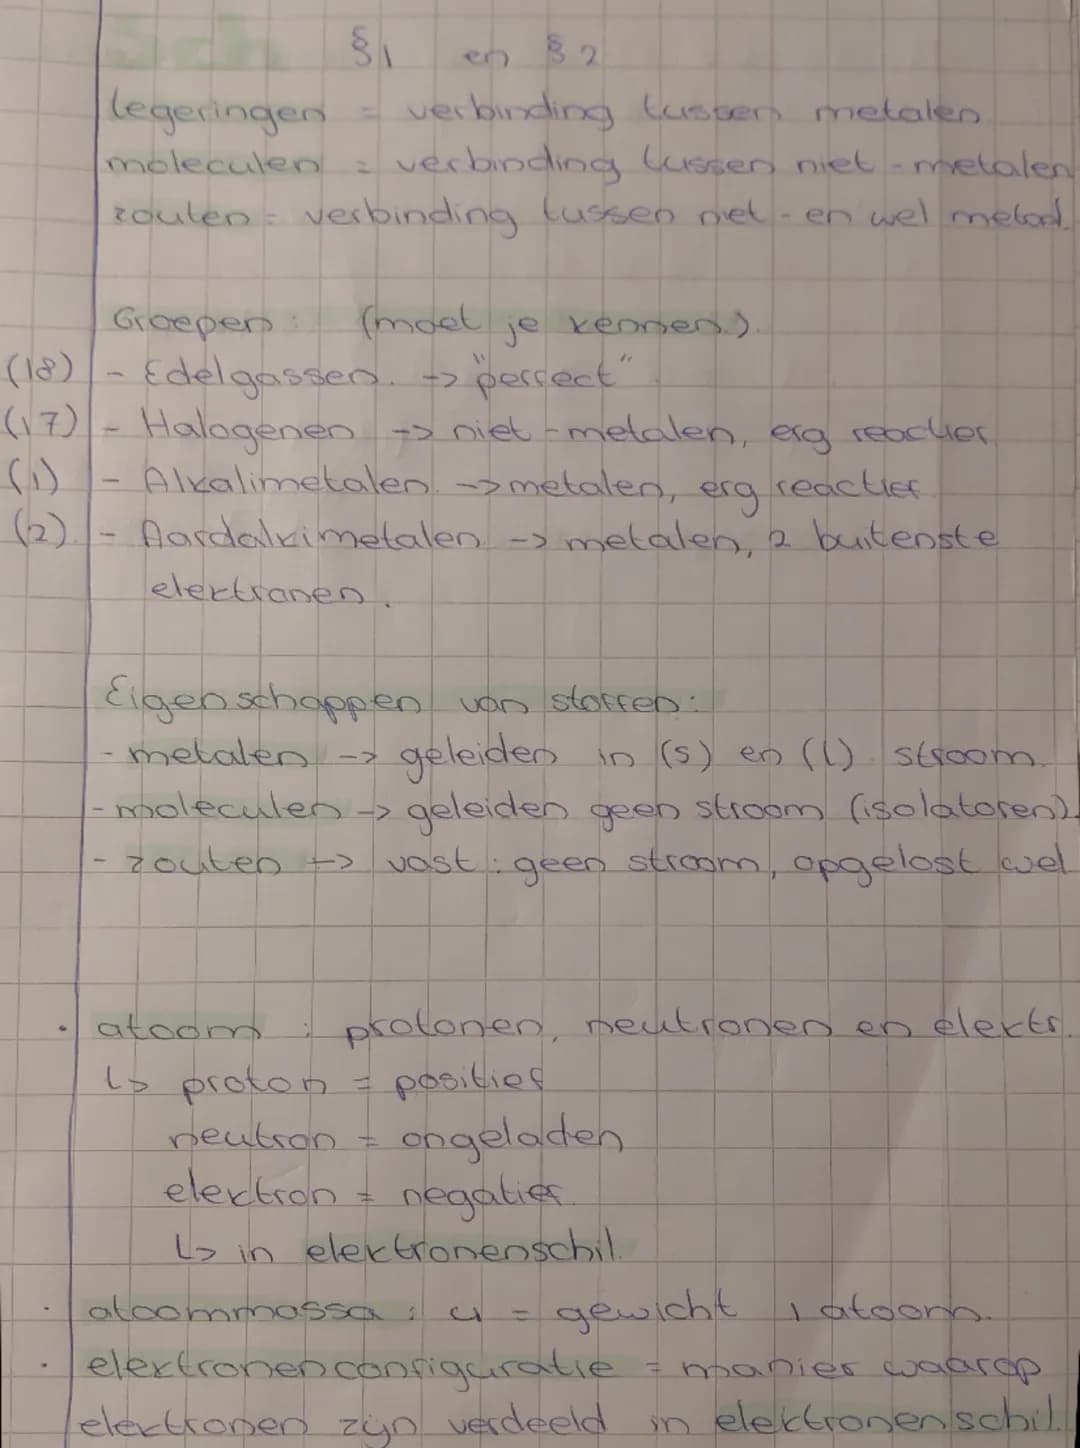 Sch
§1 en §2
legeringen = verbinding tussen metalen
moleculen = verbinding tussen niet-metalen
zouten = verbinding tussen niet- en wel metaal.
Groepen: (moet je kennen.)
(18) - Edelgassen. -> "perfect"
(17) - Halogenen -> niet-metalen, erg reactief
(1) - Alkalimetalen -> metalen, erg reactief
(2) - Aardalkimetalen -> metalen, 2 buitenste
elektronen.
Eigenschappen van stoffen:
- metalen -> geleiden in (s) en (l) stroom.
- moleculen -> geleiden geen stroom (isolatoren).
- zouten -> vast: geen stroom, opgelost wel
• atoom : protonen, neutronen en elektr.
↳ proton = positief
neutron = ongeladen
elektron = negatief.
↳ in elektronenschil.
• atoommassa: u = gewicht 1 atoom.
• elektronenconfiguratie = manier waarop
elektronen zijn verdeeld in elektronenschil.